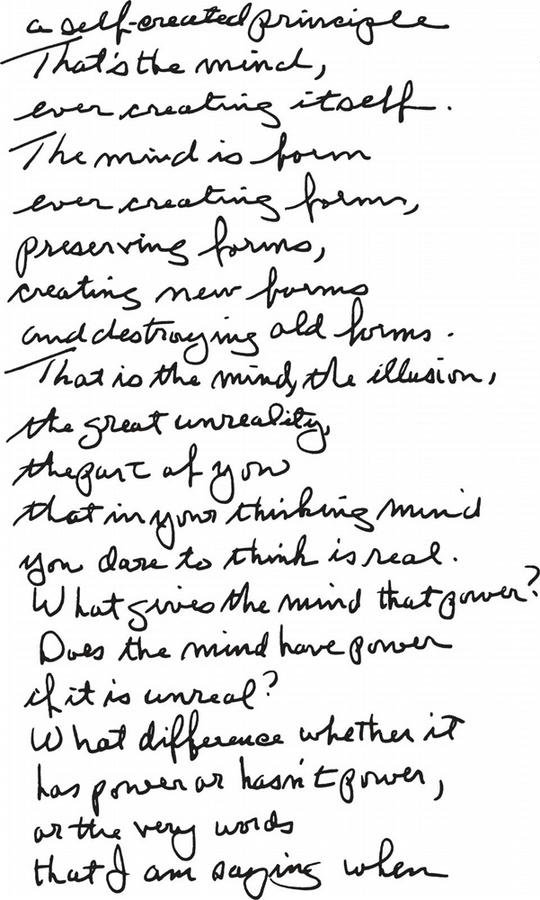 a self-created principle
That's the mind,
ever creating itself.
The mind is form
ever creating forms,
preserving forms,
creating new forms
and destroying old forms.
That is the mind, the illusion,
the great unreality,
the part of you
that in your thinking mind
you dare to think is real.
What gives the mind that power?
Does the mind have power
if it is unreal?
What difference whether it
has power or hasn't power,
or the very words
that I am saying when